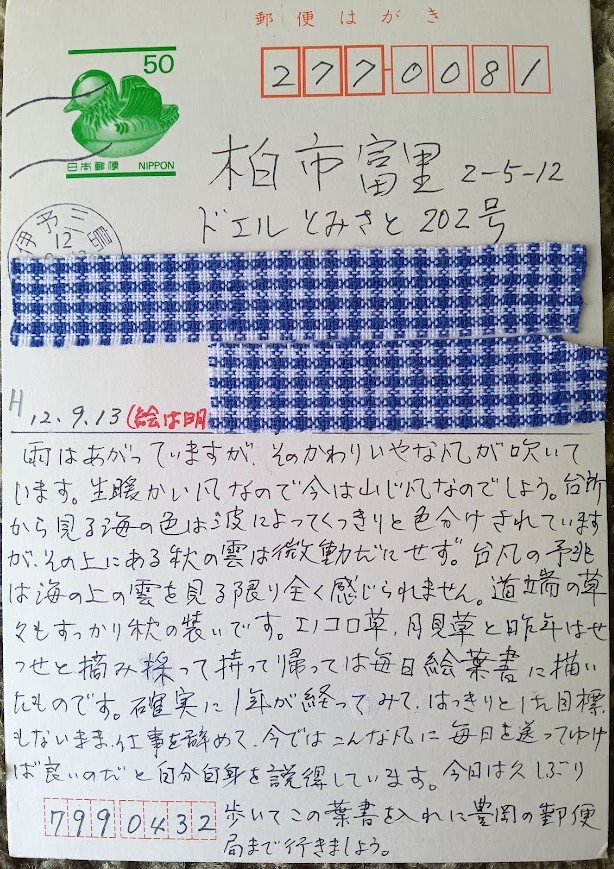 郵便はがき
50
日本郵便 NIPPON
277-0081
柏市富里 2-5-12
ドエルとみさと 202号
伊予三島
12
H12.9.13 (絵は明
雨はあがっていますが、そのかわりいやな風が吹いて
います。生暖かい風なので今は山じ風なのでしょう。台所
から見る海の色は波によってくっきりと色分けされています
が、その上にある秋の雲は微動だにせず。台風の予兆
は海の上の雲を見る限り全く感じられません。道端の草
々もすっかり秋の装いです。エノコロ草、月見草と昨年はせ
っせと摘み採って持って帰っては毎日絵葉書に描い
たものです。確実に1年が経ってみて、はっきりとした目標
もないまま仕事を辞めて、今ではこんな風に毎日を送ってゆけ
ば良いのだと自分自身を説得しています。今日は久しぶり
歩いてこの葉書を入れに豊岡の郵便
局まで行きましょう。
7990432